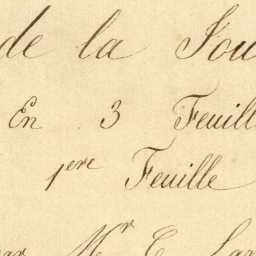 de la Fou
En 3 Feuill
1ere Feuille
Mr E. Lar